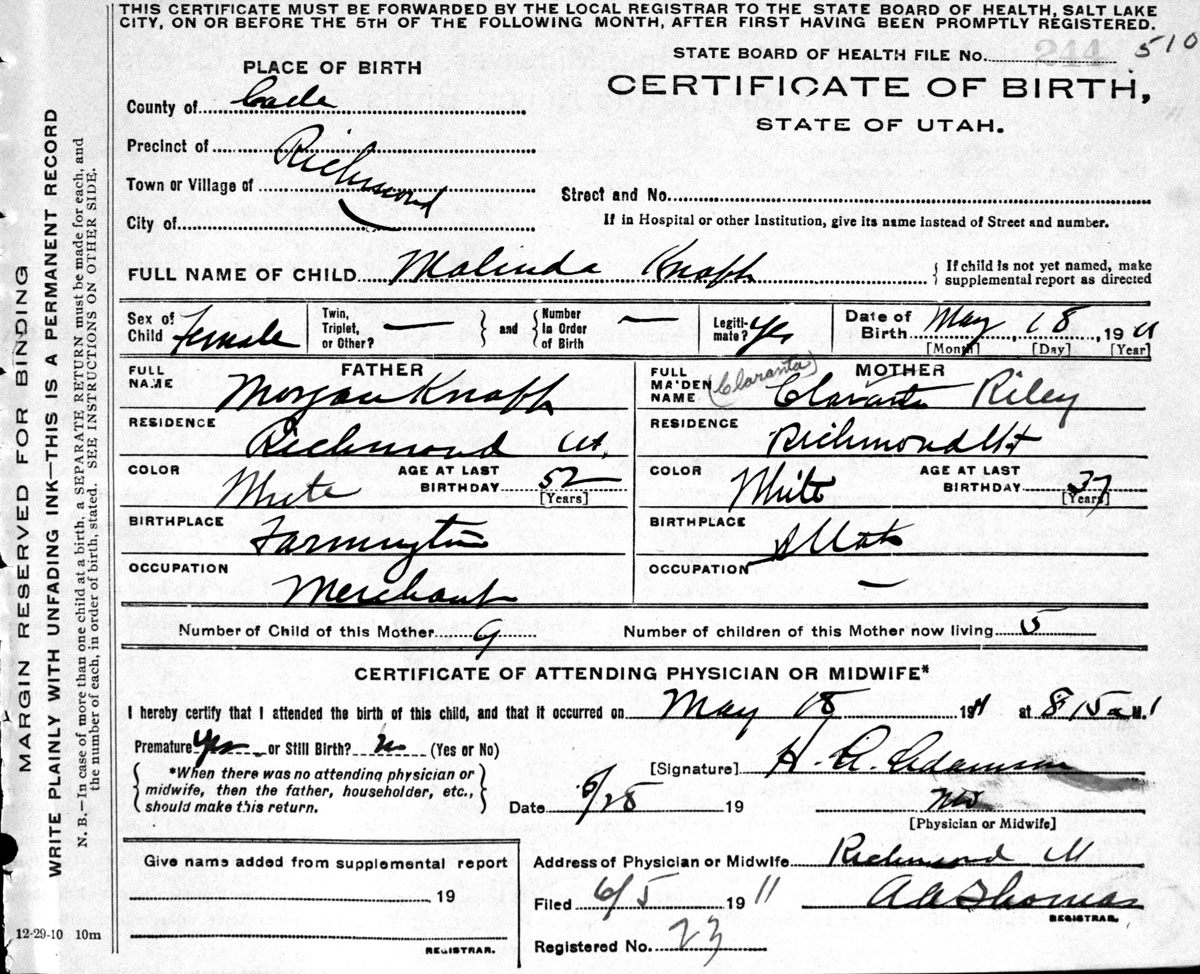 THIS CERTIFICATE MUST BE FORWARDED BY THE LOCAL REGISTRAR TO THE STATE BOARD OF HEALTH, SALT LAKE
CITY, ON OR BEFORE THE 5TH OF THE FOLLOWING MONTH, AFTER FIRST HAVING BEEN PROMPTLY REGISTERED.
STATE BOARD OF HEALTH FILE No. 510
CERTIFICATE OF BIRTH,
STATE OF UTAH.
PLACE OF BIRTH
County of
Precinct of Richmond
Town or Village of
City of
Street and No.
If in Hospital or other Institution, give its name instead of Street and number.
FULL NAME OF CHILD Malinda Knapp
If child is not yet named, make
supplemental report as directed
Sex of Child Female
Twin, Triplet, or Other? —
and
Number In Order of Birth —
Legiti-mate? Yes
Date of Birth May 18, 1911
[Month] [Day] [Year]
FATHER
FULL NAME Morgan Knapp
RESIDENCE Richmond Ut.
COLOR White AGE AT LAST BIRTHDAY 52
[Years]
BIRTHPLACE Farmington
OCCUPATION Merchant
MOTHER
FULL MAIDEN NAME (Claranta) Claranta Riley
RESIDENCE Richmond Ut
COLOR White AGE AT LAST BIRTHDAY 37
[Years]
BIRTHPLACE
OCCUPATION —
Number of Child of this Mother 9 Number of children of this Mother now living 5
CERTIFICATE OF ATTENDING PHYSICIAN OR MIDWIFE*
I hereby certify that I attended the birth of this child, and that it occurred on May 18 1911 at 8 15 a M.
Premature Yes or Still Birth? No (Yes or No)
*When there was no attending physician or
midwife, then the father, householder, etc.,
should make this return.
[Signature] H. A. Adamson
Date 5/28 19
[Physician or Midwife]
Give name added from supplemental report
19
REGISTRAR.
Address of Physician or Midwife Richmond
Filed 6/5 1911
Thomas
REGISTRAR.
Registered No. 23
12-29-10 10m
MARGIN RESERVED FOR BINDING
WRITE PLAINLY WITH UNFADING INK—THIS IS A PERMANENT RECORD
N. B.—In case of more than one child at a birth, a SEPARATE RETURN must be made for each, and
the number of each, in order of birth, stated. SEE INSTRUCTIONS ON OTHER SIDE.